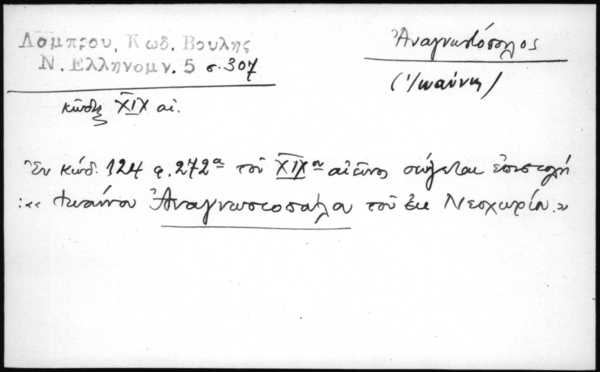 Λαμπρου, Κωδ. Βουλης
Ν. Ελληνομν. 5 σ. 307
Ἀναγνωστόπουλος
(Ἰωάννης)
κῶδιξ XIX αἰ.
Ἐν κώδ. 124 φ. 272α τοῦ XIXου αἰῶνος σώζεται ἐπιστολὴ
:« Ἰωάννου Ἀναγνωστοπούλου τοῦ ἐκ Νεοχωρίου.»